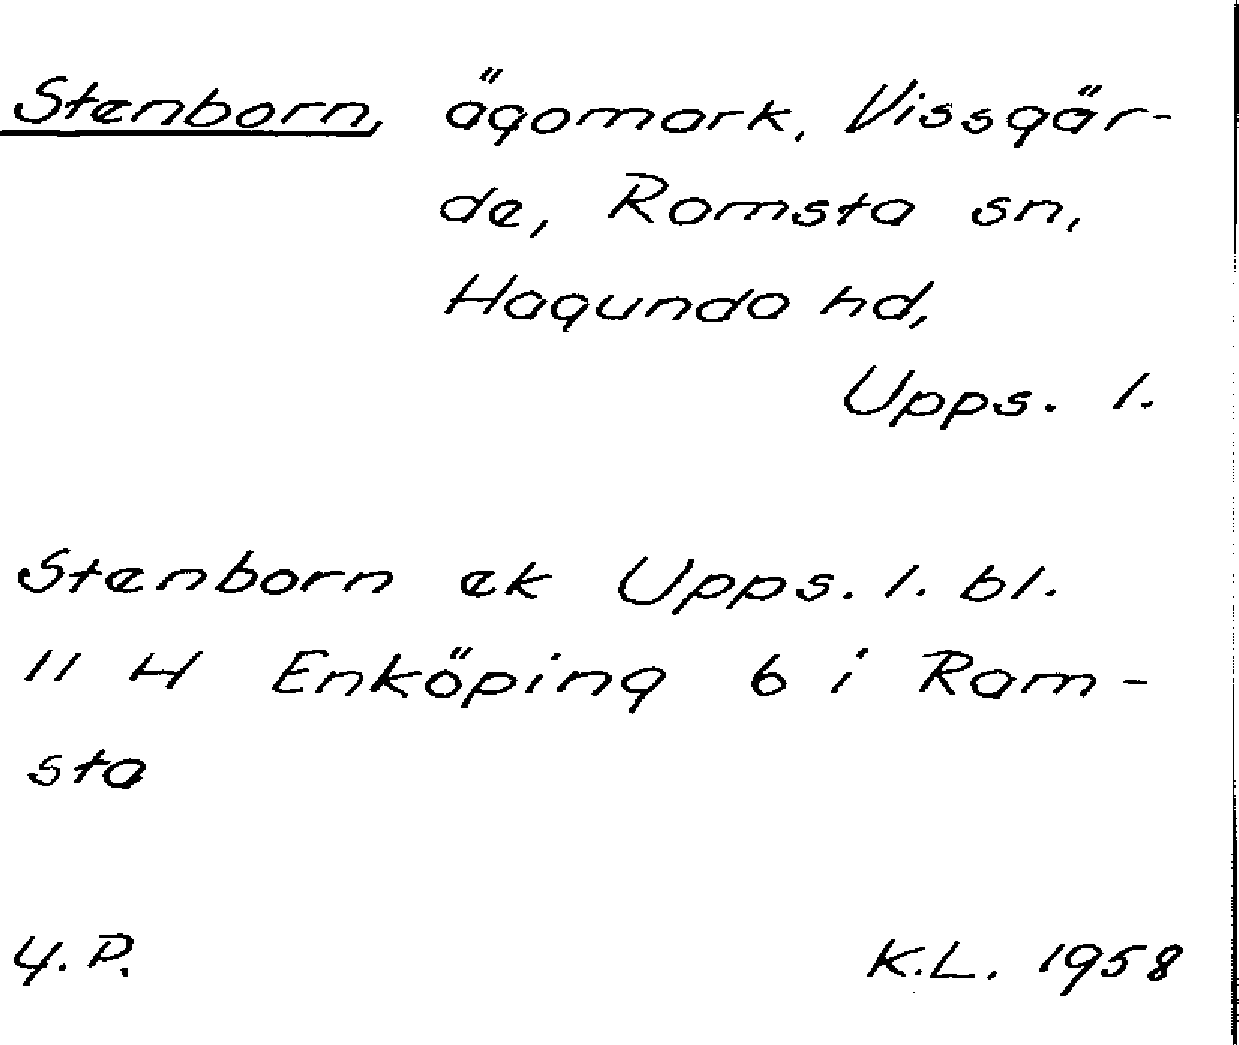 Stenborn, ägomark, Vissgär-
de, Ramsta sn,
Hagunda hd,
Upps. l.
Stenborn ek Upps. l. bl.
11 H Enköping 6 i Ram-
sta
Y.P. K.L. 1958